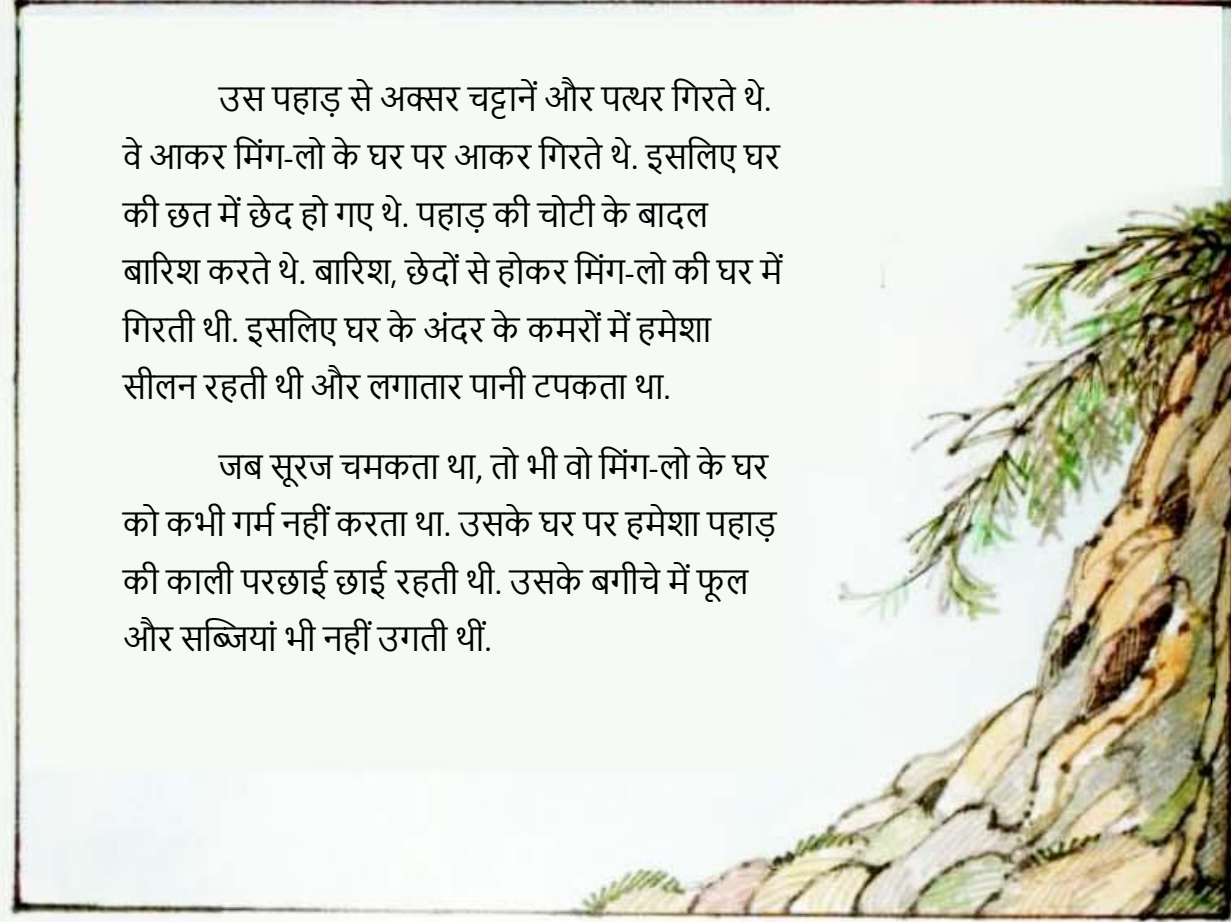 उस पहाड़ से अक्सर चट्टानें और पत्थर गिरते थे.
वे आकर मिंग-लो के घर पर आकर गिरते थे. इसलिए घर
की छत में छेद हो गए थे. पहाड़ की चोटी के बादल
बारिश करते थे. बारिश, छेदों से होकर मिंग-लो की घर में
गिरती थी. इसलिए घर के अंदर के कमरों में हमेशा
सीलन रहती थी और लगातार पानी टपकता था.
जब सूरज चमकता था, तो भी वो मिंग-लो के घर
को कभी गर्म नहीं करता था. उसके घर पर हमेशा पहाड़
की काली परछाई छाई रहती थी. उसके बगीचे में फूल
और सब्जियां भी नहीं उगती थीं.